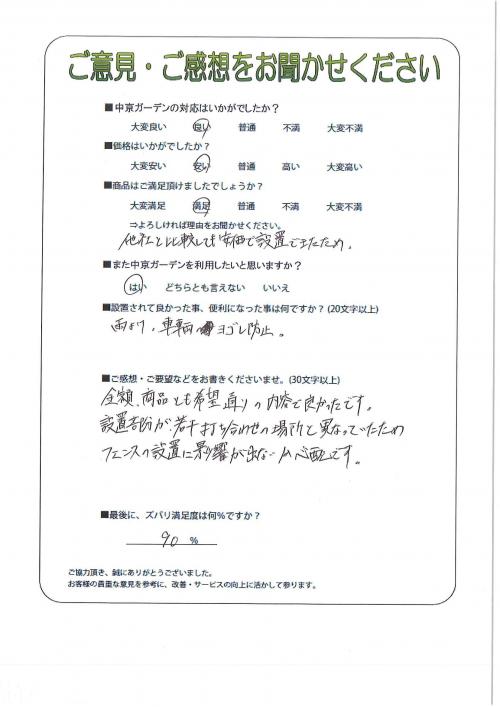 ご意見・ご感想をお聞かせください
■中京ガーデンの対応はいかがでしたか？
大変良い　良い　普通　不満　大変不満
■価格はいかがでしたか？
大変安い　安い　普通　高い　大変高い
■商品はご満足頂けましたでしょうか？
大変満足　満足　普通　不満　大変不満
⇒よろしければ理由をお聞かせください。
他社と比較しても安価で設置できたため。
■また中京ガーデンを利用したいと思いますか？
はい　どちらとも言えない　いいえ
■設置されて良かった事、便利になった事は何ですか？(20文字以上)
雨よけ、車輌ヨゴレ防止。
■ご感想・ご要望などをお書きくださいませ。(30文字以上)
金額、商品とも希望通りの内容で良かったです。
設置部分が若干打ち合わせの場所と異なっていたため
フェンスの設置に影響が出ないか心配です。
■最後に、ズバリ満足度は何%ですか？
90 %
ご協力頂き、誠にありがとうございました。
お客様の貴重な意見を参考に、改善・サービスの向上に活かして参ります。